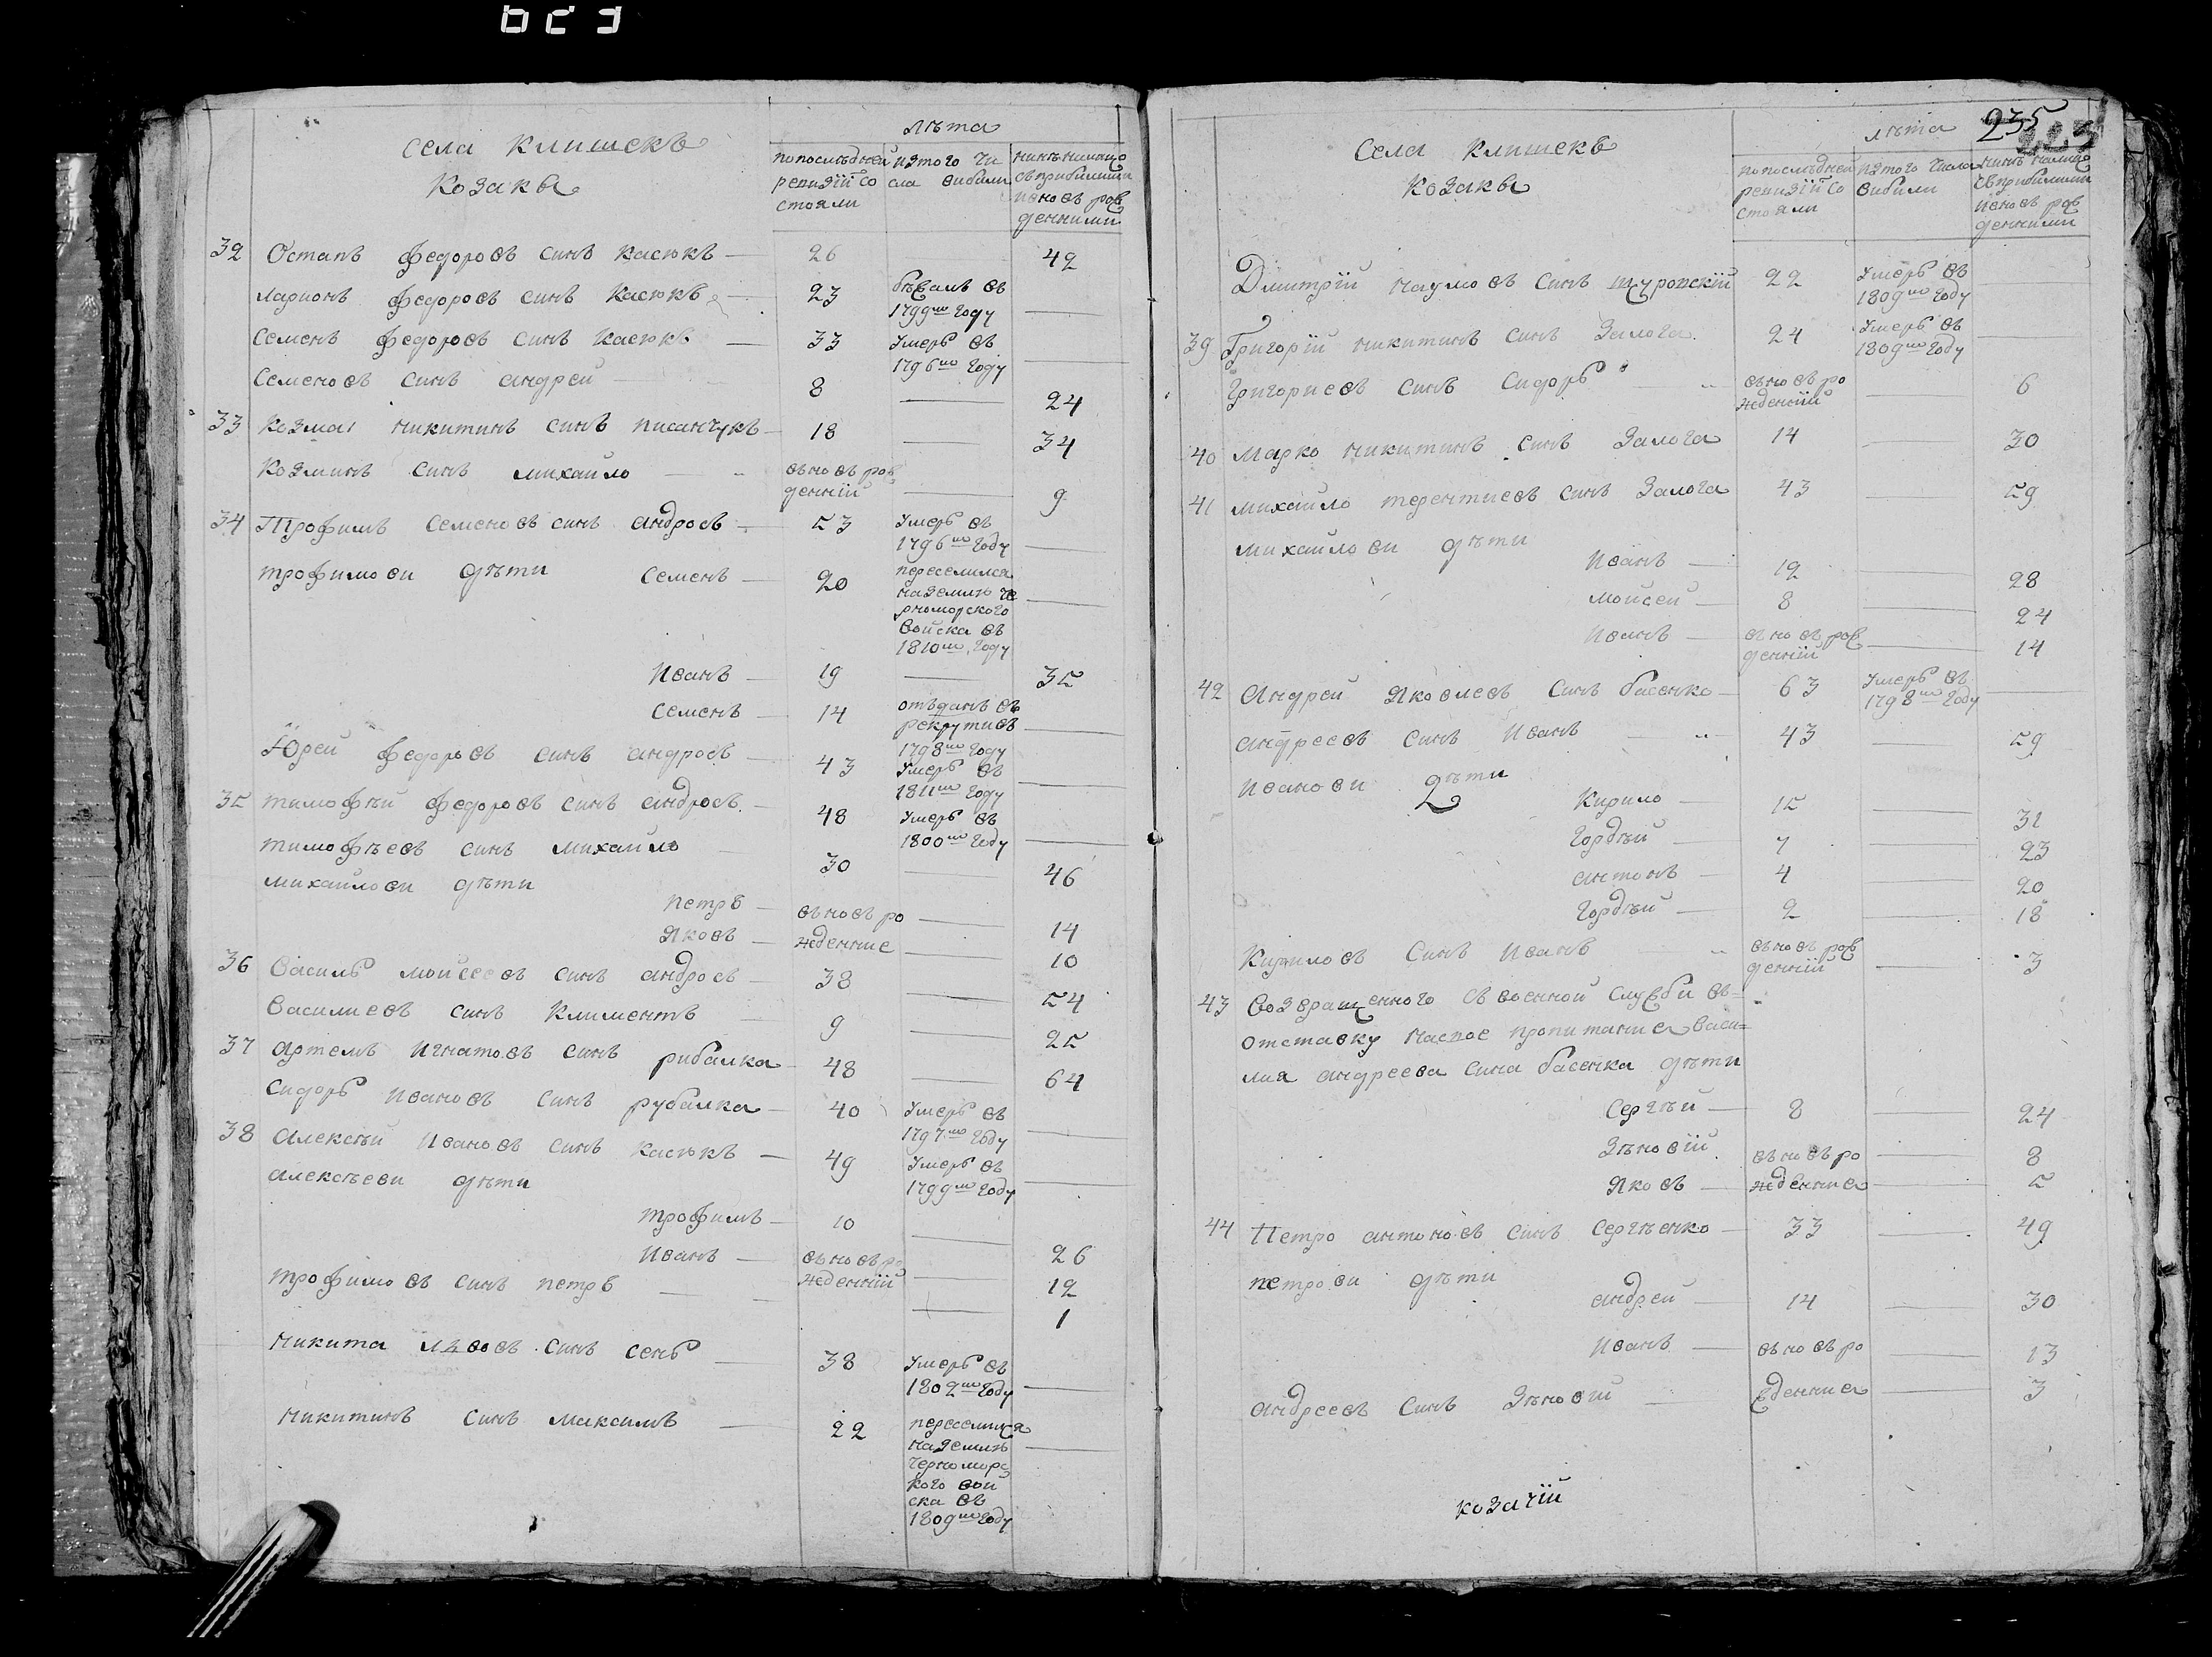 села Клишекъ
Козаки
лѣта
попоследней ревизіи состояли
изтого числа вибили
нинѣ налицо съприбилими ивновъ рожденними
32 Остапъ Федоровъ синъ Касюкъ — 26 42
Ларионъ Федоровъ синъ Касюкъ — 23 бѣжалъ въ 1799мъ году —
Семенъ Федоровъ синъ Касюкъ — 33 умеръ въ 1796мъ году —
Семеновъ синъ андрей — 8 — 24
33 Козма Никитинъ синъ Писанчукъ — 18 — 34
Козминъ синъ михайло — вьновъ рожденній — 9
34 Трофимъ Семеновъ синъ андросъ — 53 умеръ въ 1796мъ году —
трофимови дѣти семенъ — 20 переселился
наземлю че
рноморского
войска въ
1810мъ году —
Иванъ — 19 — 35
семенъ — 14 отъданъ въ рекрути въ 1798мъ году —
Юрей Федоровъ синъ андросъ — 43 умеръ въ 1811мъ году —
35 тимофѣй Федоровъ синъ андросъ — 48 умеръ въ 1800мъ году —
тимофѣевъ синъ михайло — 30 — 46
михайлови дѣти
петръ — вьновъ ро — 14
Яковъ — жденние — 10
36 Василь мойсеевъ синъ андросъ — 38 — 54
Василиевъ синъ Климентъ — 9 — 25
37 Артемъ Игнатовъ синъ рибалка — 48 — 64
Сидоръ Ивановъ синъ рубалка — 40 умеръ въ 1797мъ году —
38 Алексѣй Ивановъ синъ Касюкъ — 49 умеръ въ 1799мъ году —
алексѣеви дѣти
трофимъ — 10 — 26
Иванъ — вьновъ ро — 12
трофимовъ синъ петръ — жденній — 1
Никита синъ сень — 38 умеръ въ 1802мъ году —
Никитинъ синъ максимъ — 22 переселился
наземлю
черноморс
кого вой
ска въ
1809мъ году —
235
Села Клишекъ
Козаки
лѣта
попоследней ревизіи состояли
изтого числа вибили
нинѣ налицо съприбилими ивновъ рожденними
Дмитрій Наумовъ синъ щуровскій 22 умеръ въ 1809мъ году —
39 Григорій Никитинъ синъ Залога 24 умеръ въ 1809мъ году —
Григориевъ синъ Сидоръ — вьновъ рожденній — 6
40 Марко Никитинъ синъ Залога 14 — 30
41 михайло терентиевъ синъ Залога 43 — 59
михайлови дѣти
Иванъ — 12 — 28
мойсей — 8 — 24
Иванъ — вьновъ рожденній — 14
42 Андрей Яковлевъ синъ басенко — 63 умеръ въ 1798мъ году
андреевъ синъ Иванъ — 43 — 59
Иванови дѣти
Кирило — 15 — 31
Гордѣй — 7 — 23
антонъ — 4 — 20
Гордѣй — 2 — 18
Кириловъ синъ Иванъ — вьновъ рожденній — 3
43 Возвращенного съ военной служби въ=
отставку насвое пропитание васи=
лия андреева сина басенка дѣти
Сергѣй — 8 — 24
Зѣновій вьновъ ро — 8
Яковъ — жденние — 5
44 Петро антоновъ синъ Сергѣенко — 33 — 49
петрови дѣти
андрей — 14 — 30
Иванъ — вьновъ ро — 13
андреевъ синъ Зѣновій — жденние — 3
козачій